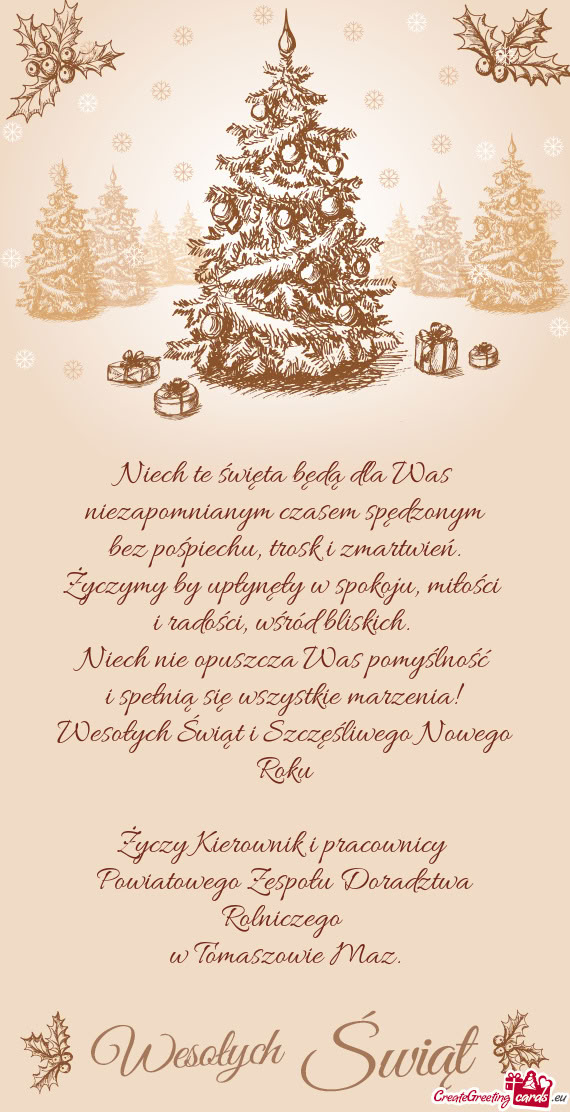 Niech te święta będą dla Was
niezapomnianym czasem spędzonym
bez pośpiechu, trosk i zmartwień.
Życzymy by upłynęły w spokoju, miłości
i radości, wśród bliskich.
Niech nie opuszcza Was pomyślność
i spełnią się wszystkie marzenia!
Wesołych Świąt i Szczęśliwego Nowego
Roku
Życzy Kierownik i pracownicy
Powiatowego Zespołu Doradztwa
Rolniczego
w Tomaszowie Maz.
Wesołych Świąt
CreateGreeting cards .eu